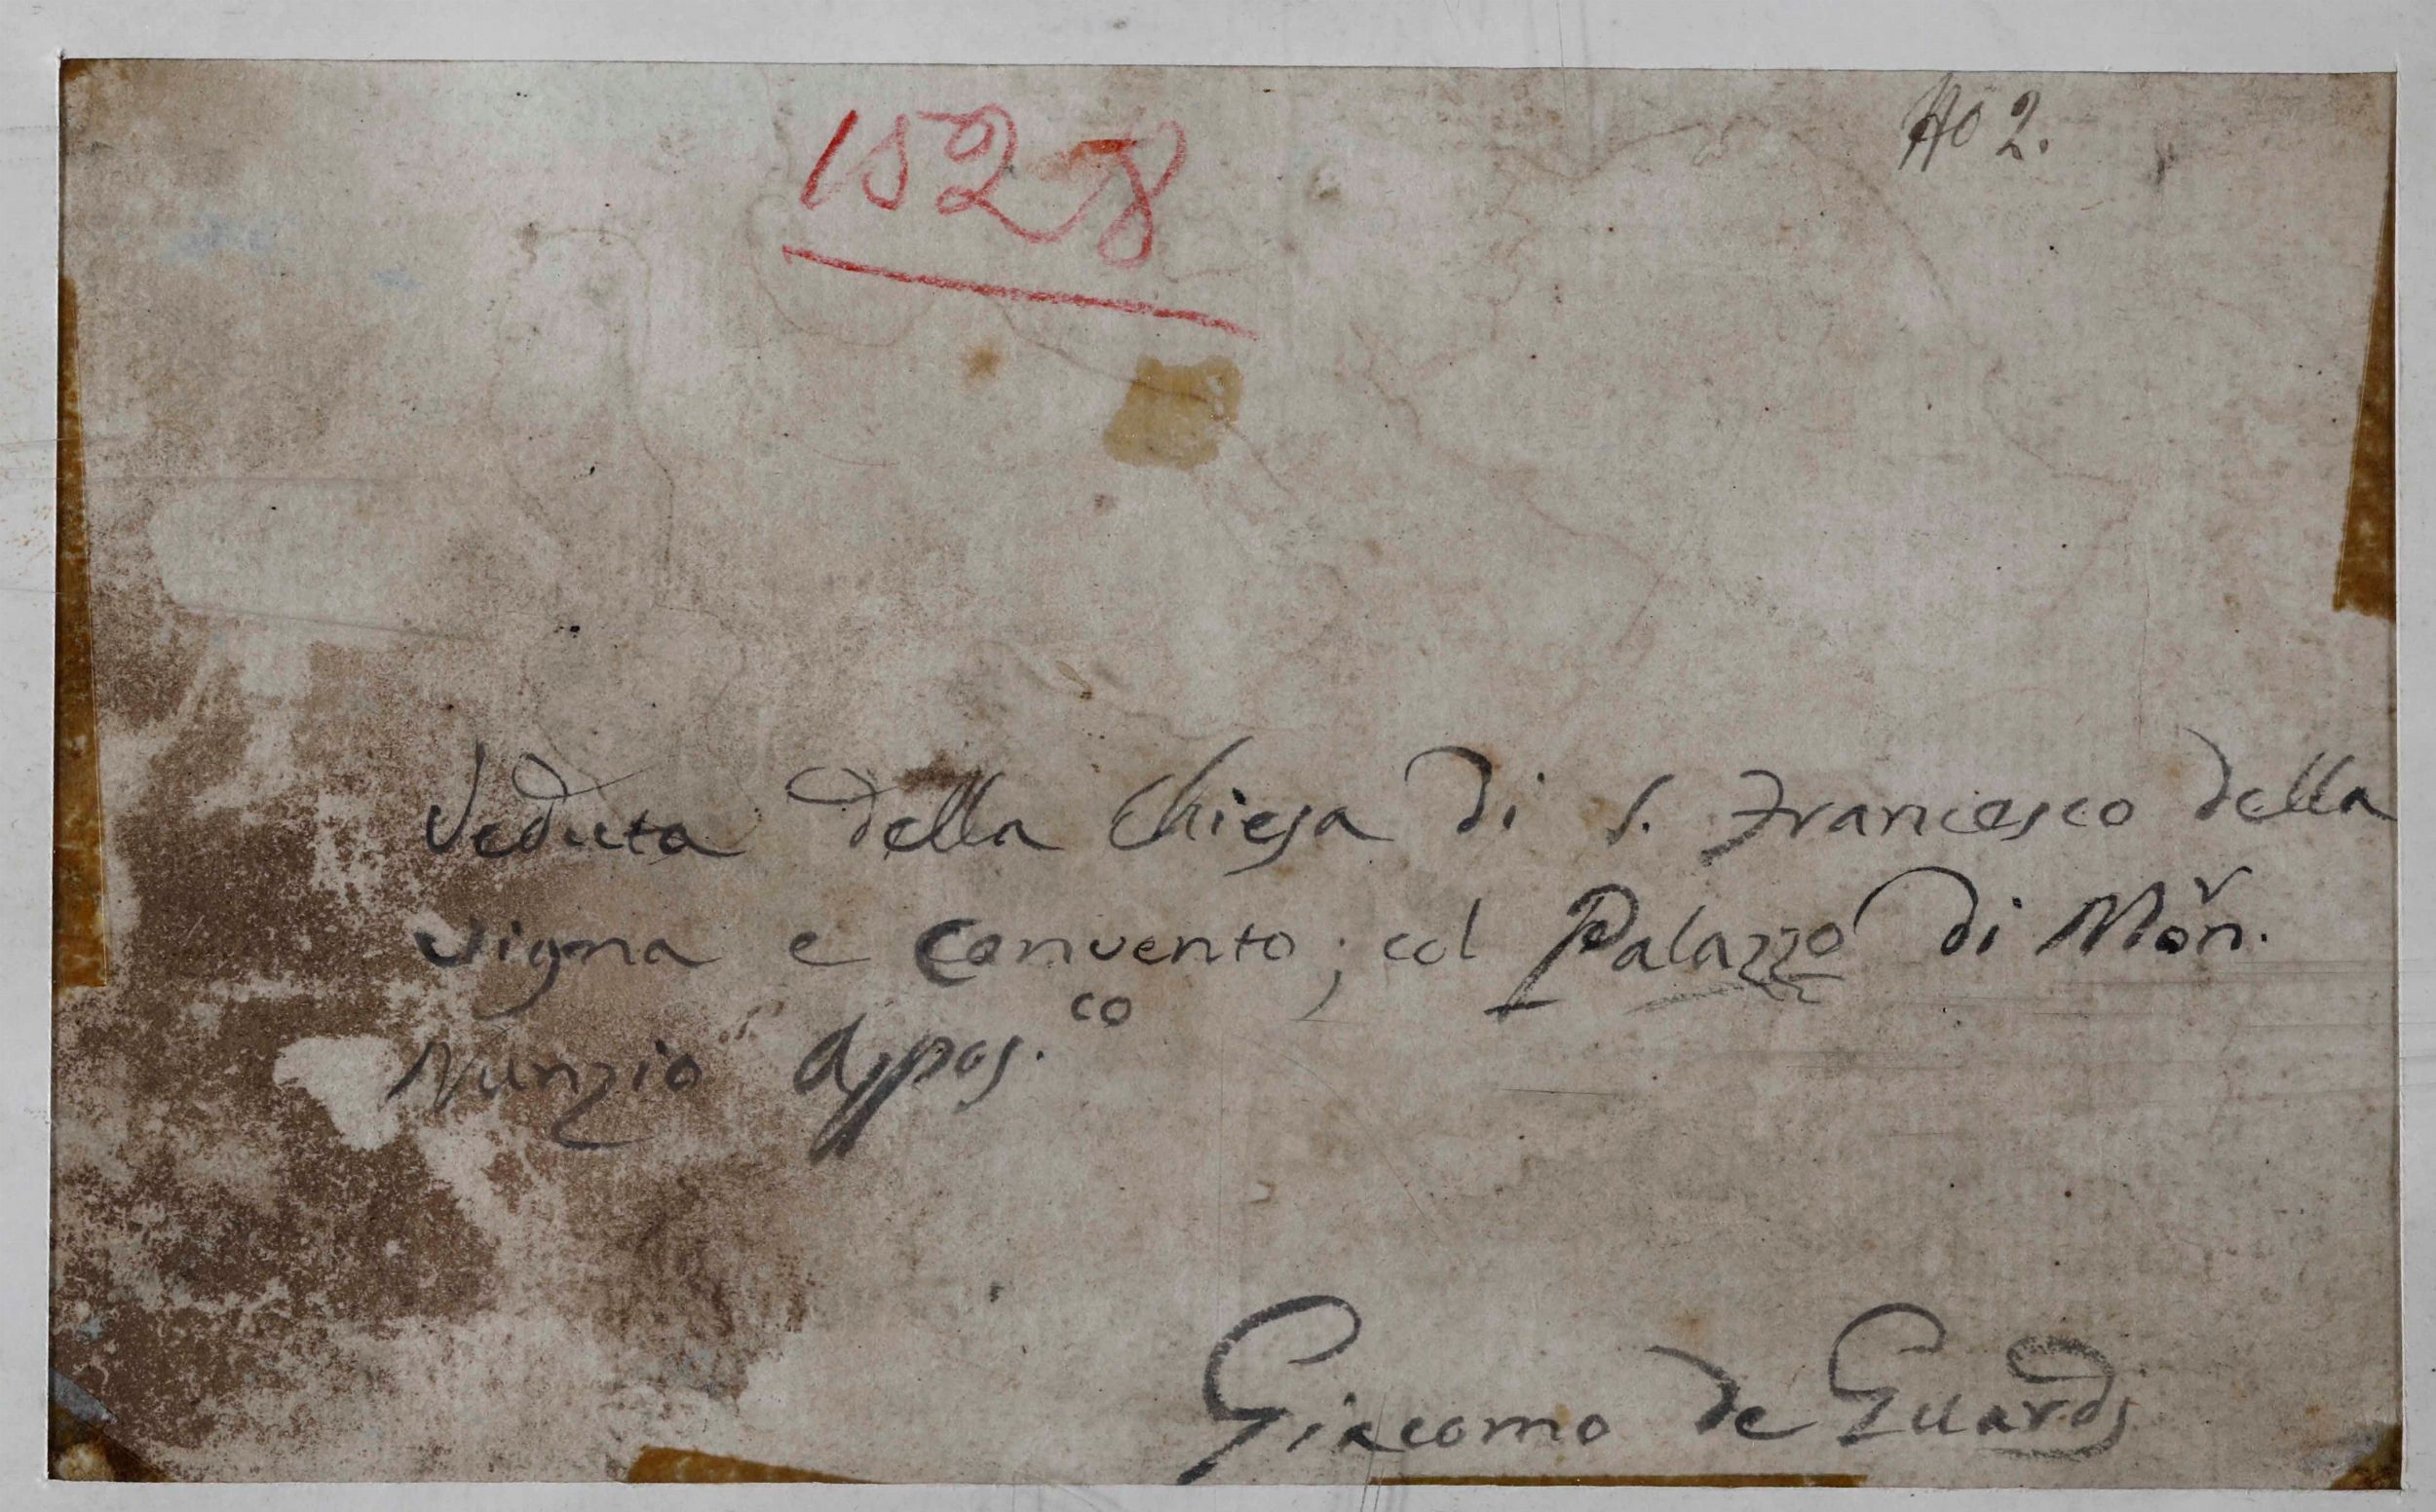 1528
No 2.
Veduta della Chiesa di S. Francesco della
Vigna e Convento; col Palazzo di Mõn.
Nunzio Appos.co
Giacomo de Guardi